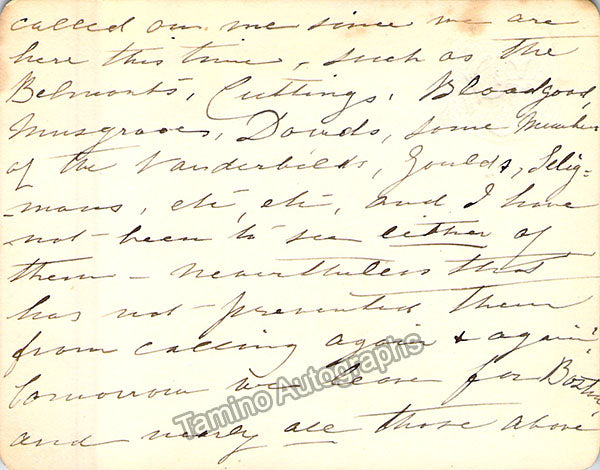 called on me since we are
here this time, such as the
Belmonts, Cuttings, Bloodgood,
Musgraves, Dowds, some members
of the Vanderbilds, Goulds, Selig=
-mans, etc, etc, and I have
not been to see either of
them - nevertheless that
has not prevented them
from calling again & again"
tomorrow we leave for Boston,
and nearly all those above
Tamino Autographs